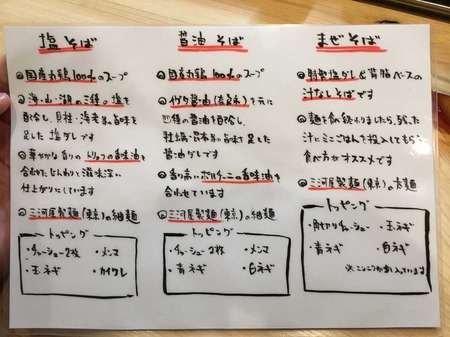 塩そば
◎国産丸鶏100%のスープ
◎海・山・湖の三種の塩を
配合し、貝柱・海老等の旨味を
足した塩ダレです
◎華やかな香りのトリュフの香味油を
合わせじんわりと滋味深い
仕上がりにしています
◎三河屋製麺(東京)の細麺
トッピング
・チャーシュー2枚 ・メンマ
・玉ネギ ・カイワレ
醤油そば
◎国産丸鶏100%のスープ
◎イゲタ醤油(奈良)を元に
四種の醤油を配合し、
牡蠣・昆布等の旨味を足した
醤油ダレです
◎香り高いポルチーニの香味油を
合わせています
◎三河屋製麺(東京)の細麺
トッピング
・チャーシュー2枚 ・メンマ
・青ネギ ・白ネギ
まぜそば
◎特製塩ダレ&背脂ベースの
汁なしそばです
◎麺を飲み終わりましたら、残った
汁にミニごはんを投入してもらう
食べ方がオススメです
◎三河屋製麺(東京)の太麺
トッピング
・角切りチャーシュー ・玉ネギ
・青ネギ ・白ネギ